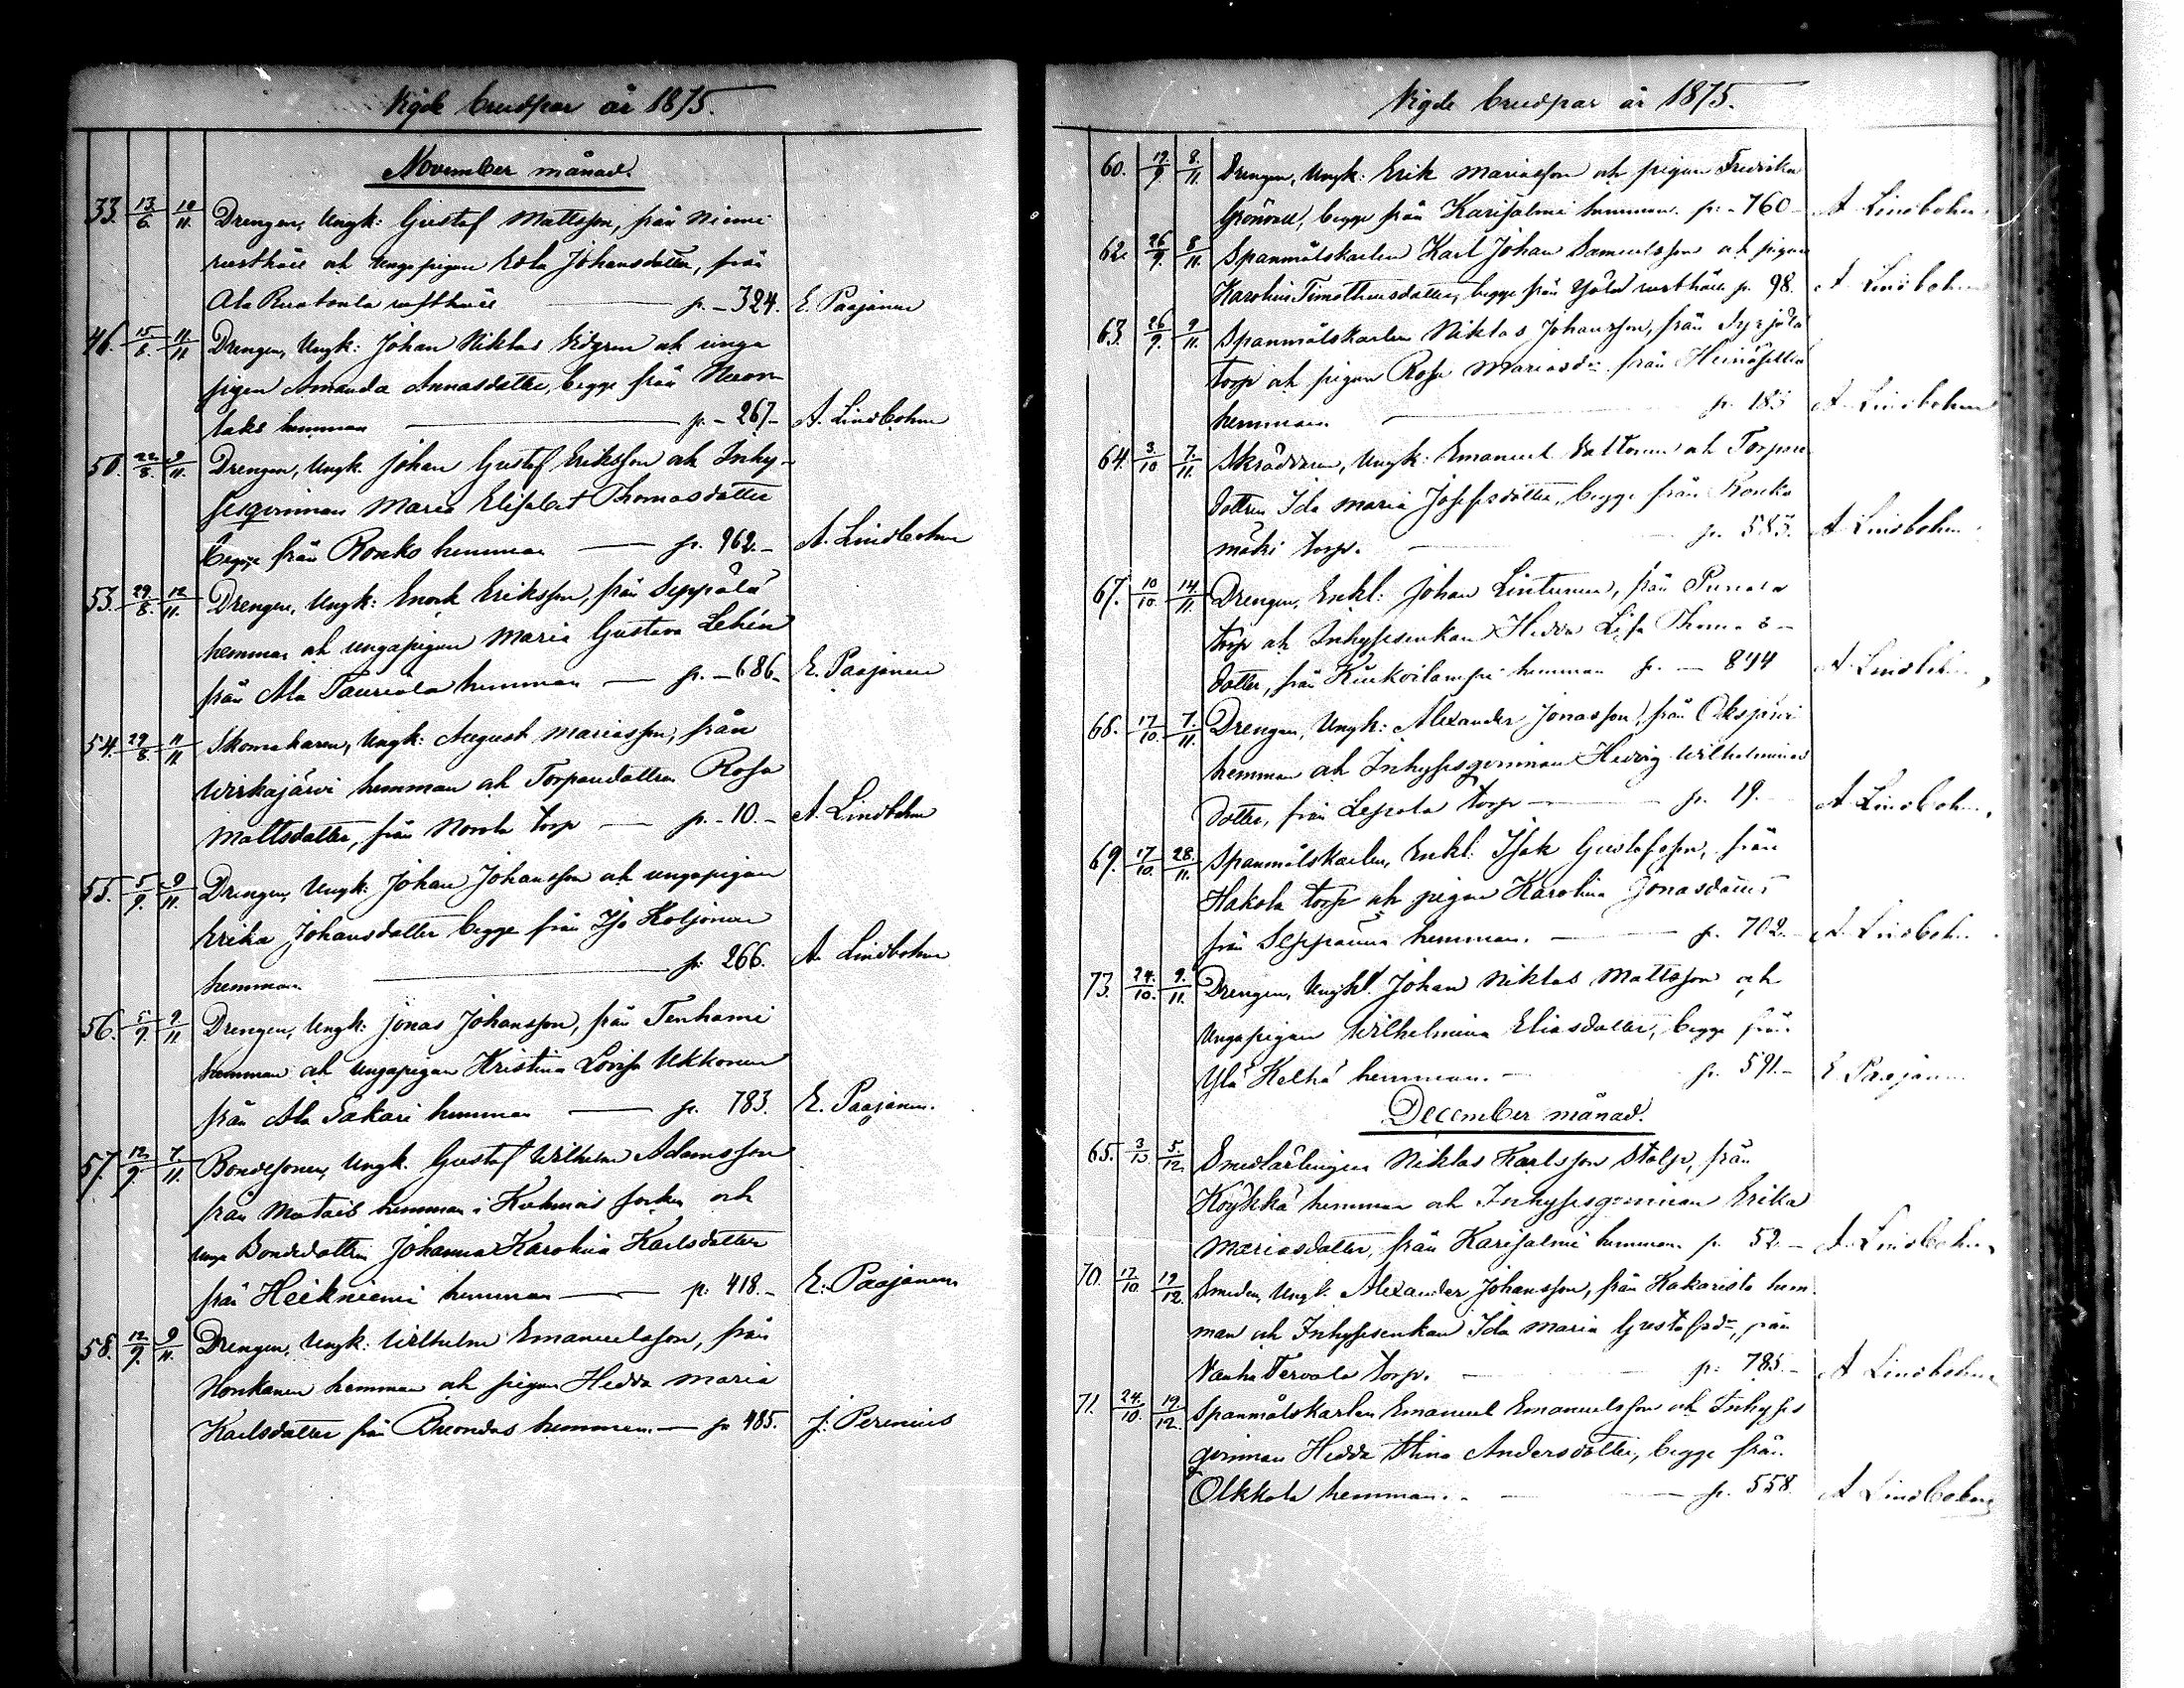 Vigde brudpar år 1875.
November månad.
33. 13/6. 10/11. Drengen, Ungk: Gustaf Mattsson, från Niemi
rusthåll och Ungapigan Edla Johansdotter, från
Ala rusthåll — p. - 324. E. Paajanen
46. 15/8. 11/11 Drengen, Ungk: Johan Niklas och unga
pigan Amanda Annasdotter, begge från
hemman — p. - 267- A. Lindbohm
50. 22/8. 9/11. Drengen, Ungk. Johan Gustaf Eriksson och Inhy-
sesqvinnan Maria Elisabet Thomasdotter
begge från Ronko hemman — p. 962.- A. Lindbohm
53. 29/8. 12/11. Drengen, Ungk: Enok Eriksson, från Seppälä
hemman och ungapigan Maria Gustava Lehén
från Ala Tauriala hemman — p. - 686- E. Paajanen
54. 29/8. 11/11. Skomakaren, Ungk: August Mariasson, från
Wirkajärvi hemman och Torparedottren Rosa
Mattsdotter, från torp — p. - 10.- A. Lindbohm
55. 5/9. 9/11. Drengen, Ungk: Johan Johansson och ungapigan
Erika Johansdotter begge från Iso Koljonen
hemman. — p. 266. A. Lindbohm
56. 5/9. 9/11 Drengen, Ungk: Jonas Johansson, från Tenhami
hemman och Ungapigan Kristina Lovisa Ukkonen
från Ala Sakari hemman — p. 783. E. Paajanen.
57. 12/9. 7/11. Bondesonen, Ungk. Gustaf Wilhelm Adamsson
från hemman i Kuhmois socken och
unga Bondedottren Johanna Karolina Karlsdotter
från Heikniemi hemman — p. 418.- E. Paajanen
58. 12/9. 9/11. Drengen, Ungk: Wilhelm Emanuelsson, från
Honkanen hemman och pigan Hedda Maria
Karlsdotter från hemman. — p. 485. J. Perenius
Vigde brudpar år 1875.
60. 19/9. 8/11. Drengen, Ungk: Erik Mariasson och pigan Fredrika
Grönvall, begge från Karisalmi hemman. p. - 760- A. Lindbohm
62. 26/9. 8/11. Spanmålskarlen Karl Johan Samuelsson och pigan
Karolina Timotheusdotter, begge från rusthåll p. 98. A. Lindbohm
63. 26/9. 9/11. Spanmålskarlen Niklas Johansson, från Syrjälä
torp och pigan Rosa Mariasd:r från
hemman. — p. 183 A. Lindbohm
64. 3/10 7/11. Skräddaren, Ungk: Emanuel och Torpare
dottren Ida Maria Josefsdotter, begge från
mäki torp. — p. 583. A. Lindbohm
67. 10/10. 14/11 Drengen, Enkl: Johan Lintunen, från
torp och Inhysesenkan Hedda Lisa Thomas-
dotter, från hemman p. — 844 A. Lindbohm
68. 17/10. 7/11. Drengen, Ungk: Alexander Jonasson, från Oksjärvi
hemman och Inhysesqvinnan Hedvig Wilhelmina
dotter, från Lepola torp — p. 19. A. Lindbohm
69. 17/10. 28/11. Spanmålskarlen, Enkl: Isak Gustafsson, från
Hakola torp och pigan Karolina Jonasdotter
från hemman. — p. 702.- A. Lindbohm
73. 24/10. 9/11. Drengen, Ungkl. Johan Niklas Mattsson och
Ungapigan Wilhelmina Eliasdotter, begge från
Ylä Kelhä hemman. — p. 591.- E. Paajanen
December månad.
65. 3/10 5/12. Smedlärlingen Niklas Karlsson Stolp, från
Köykkä hemman och Inhysesqvinnan Erika
Mariasdotter, från Karisalmi hemman p. 52.- A. Lindbohm
70. 17/10 19/12. Smeden, Ungk. Alexander Johansson, från Kakaristo hem-
man och Inhysesenkan Ida Maria Gustafsd:r, från
Vanha Tervala torp. — p. 785.- A. Lindbohm
71. 24/10. 19/12. Spanmålskarlen Emanuel Emanuelsson och Inhyses
qvinnan Hedda Stina Andersdotter, begge från
Olkkola hemman. — p. 558. A. Lindbohm